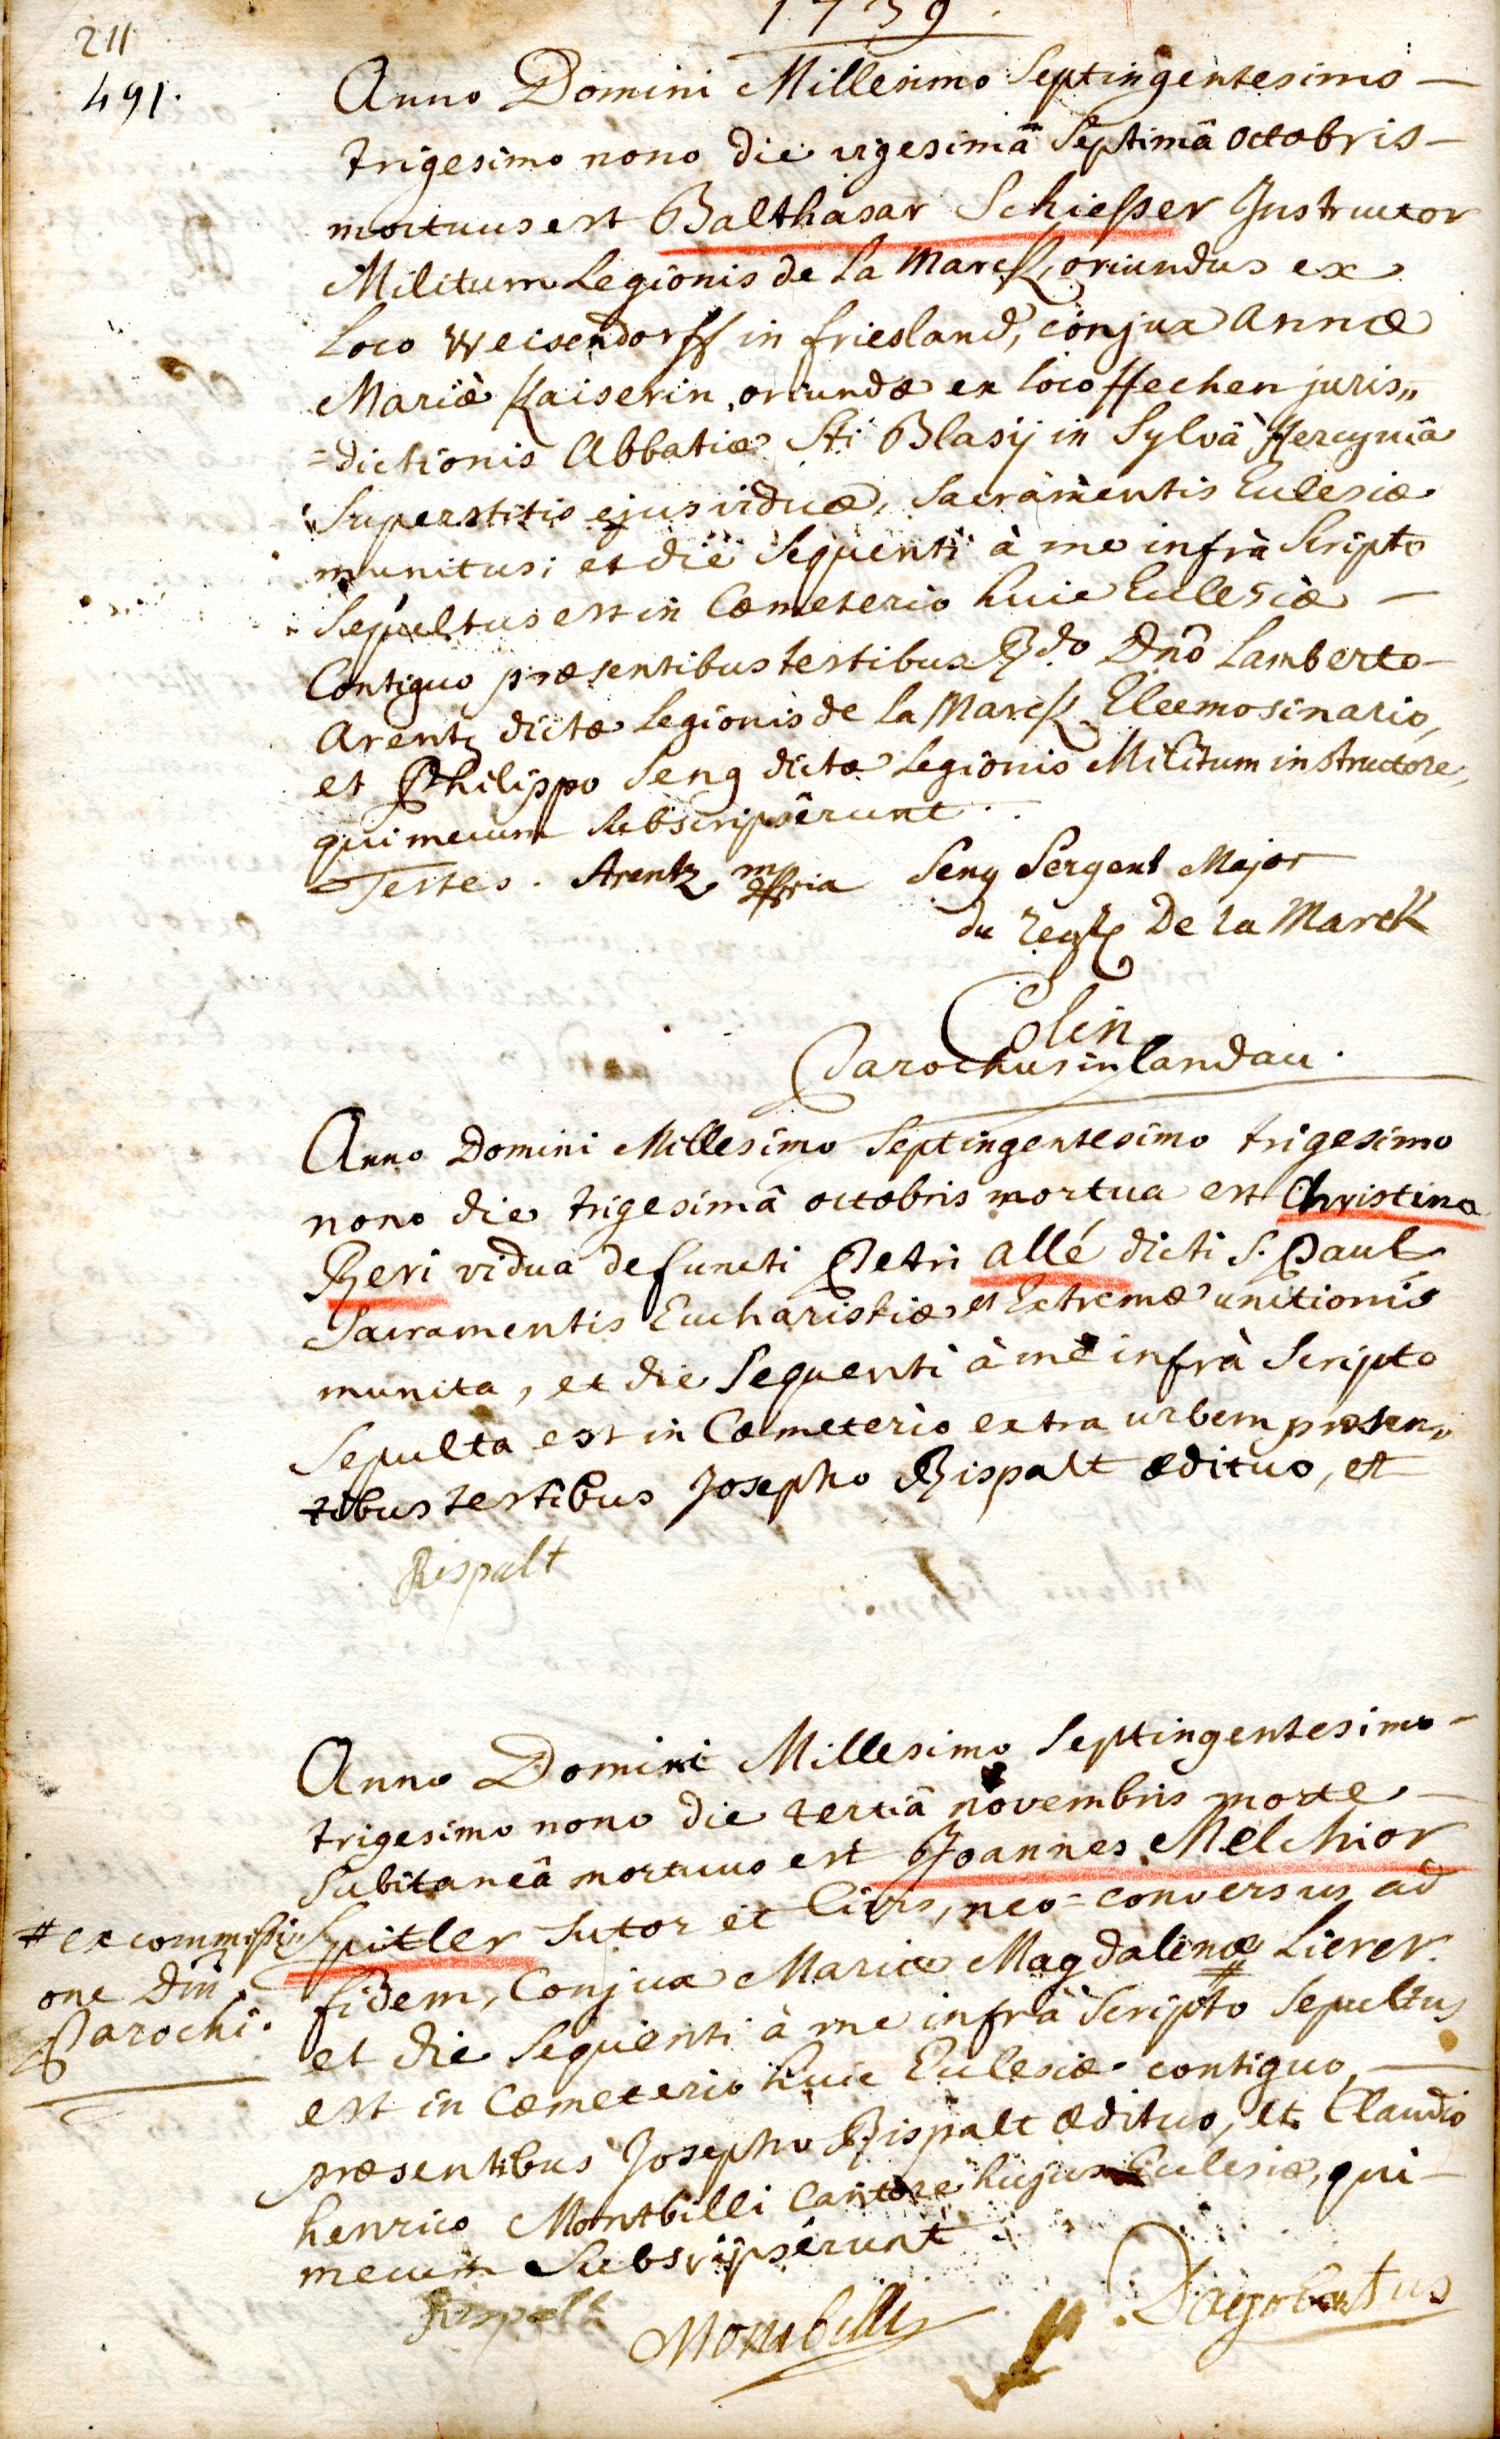 1739.
211
491.
Anno Domini Millesimo Septingentesimo —
trigesimo nono die vigesimâ Septimâ Octobris —
mortuus est Balthasar Schiesser Instructor
Militum Legionis de la Marck, oriundus ex
loco Weisendorff in friesland, conjux Annæ
Mariæ Kaiserin, oriundæ ex loco Hechen juris„
=dictionis Abbatiæ Sti Blasij in Sylvâ Hercyniâ
Superstitis ejus viduæ, Sacramentis Ecclesiæ
munitus; et die Sequenti à me infrà Scripto
Sepultus est in Cœmeterio huic Ecclesiæ —
Contiguo præsentibus testibus Rdo Dno Lamberto —
Arentz dictæ Legionis de la Marck Eleemosinario,
et Philippo Seng dictæ Legionis Militum instructore,
qui mecum Subscripserunt.
Testes. Arentz mppria Seng Sergent Major
du Regt De la Marck
Colin
Parochus in Landau.
Anno Domini Millesimo Septingentesimo trigesimo
nono die trigesimâ octobris mortua est Christina
Beri vidua defuncti Petri allé dicti S. Paul
Sacramentis Eucharistiæ et Extremæ unctionis
munita, et die Sequenti à me infrà Scripto
Sepulta est in Cœmeterio extra urbem præsen„
tibus testibus Josepho Rispalt ædituo, et
Rispalt
Anno Domini Millesimo Septingentesimo —
trigesimo nono die tertiâ novembris morte —
Subitaneâ mortuus est Joannes Melchior
Spitler Sutor et Civis, neo=conversus ad
fidem, Conjux Mariæ Magdalenæ Lierer
et die Sequenti à me infrà Scripto # Sepultus
est in Cœmeterio huic Ecclesiæ contiguo, —
præsentibus Josepho Rispalt ædituo, et Claudio
henrico Montbilli Cantore hujus Ecclesiæ, qui —
mecum Subscripserunt
# ex commissi„
one Dni
Parochi.
Rispalt
Montbilli
Dagobertus